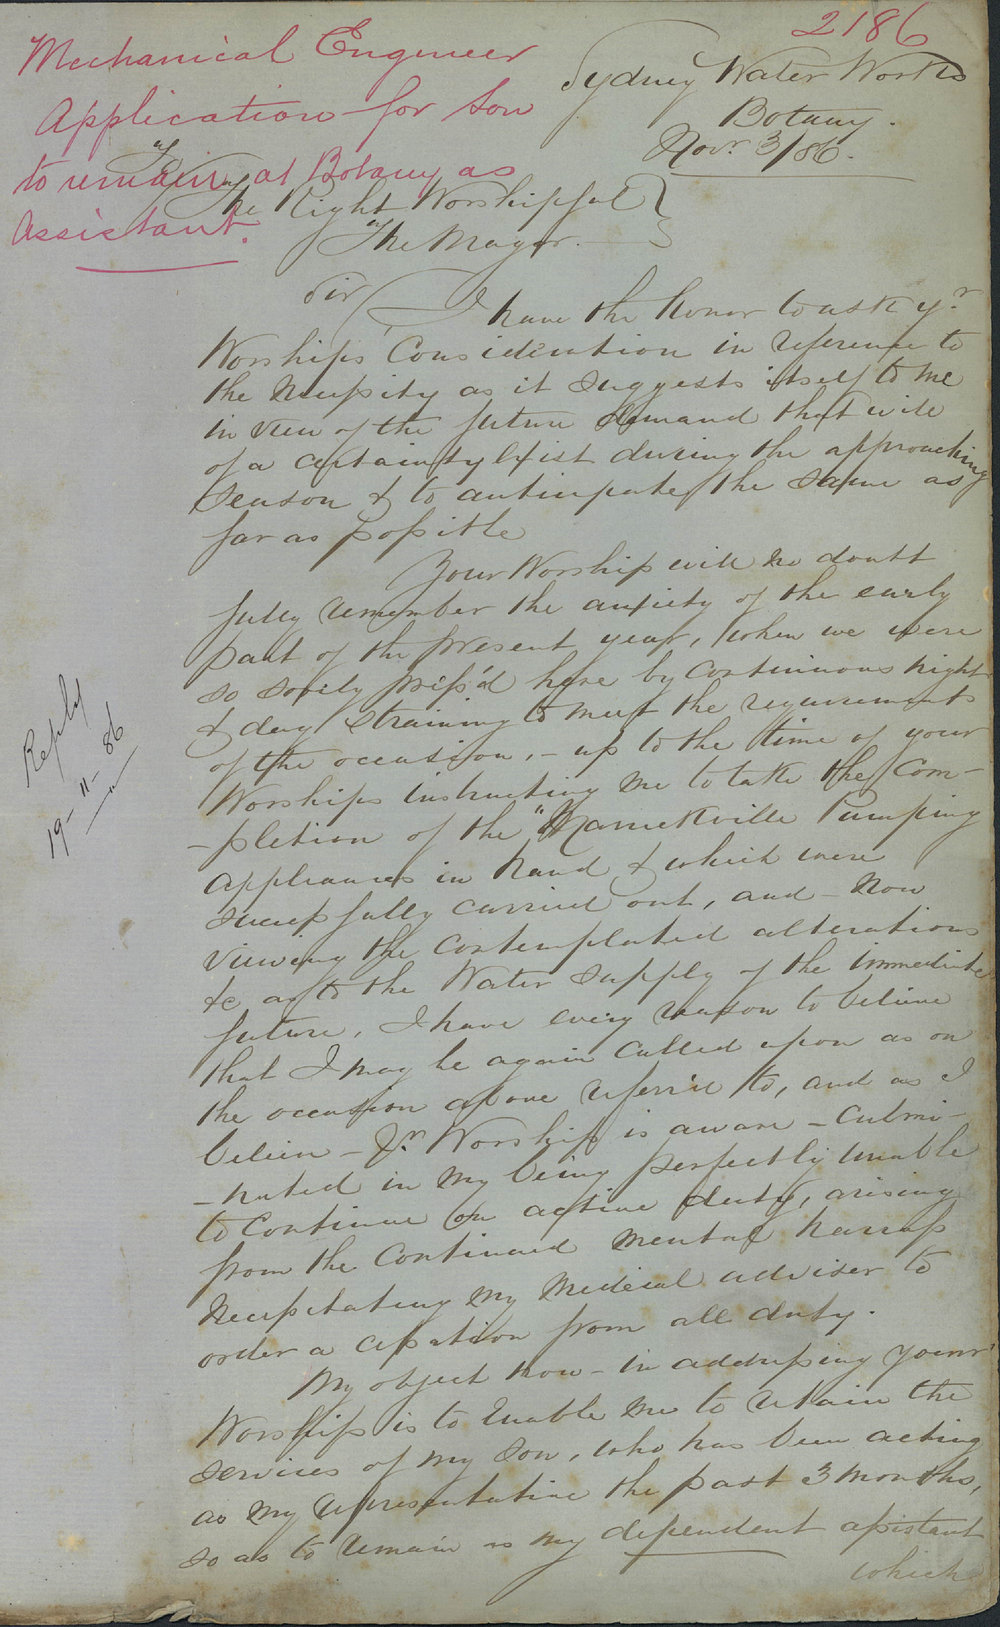 2186
Mechanical Engineer
Application for Son
to remain at Botany as
Assistant.
Sydney Water Works
Botany.
Novr. 3/86.
The Right Worshipful
The Mayor.
Sir
I have the honor to ask yr.
Worships Consideration in reference to
the necessity as it suggests itself to me
in view of the future demand that will
of a certainty exist during the approaching
season & to anticipate the same as
far as possible
Your Worship will no doubt
fully remember the anxiety of the early
part of the present year, when we were
so sorely press'd here by continuous night
& day straining to meet the requirements
of the occasion, - up to the time of your
Worships instructing me to take the Com-
-pletion of the "Marrickville Pumping
Appliances in hand & which were
successfully carried out, and - now
viewing the contemplated alterations
&c as to the Water Supply of the immediate
future, I have every reason to believe
that I may be again called upon as on
the occasion above referr'd to, and as I
believe - Yr. Worship is aware - culmi-
-nated in my being perfectly unable
to continue on active duty, arising
from the continued mental harrass
necessitating my medical adviser to
order a cessation from all duty.
My object now - in addressing your
Worship is to enable me to retain the
services of my son, who has been acting
as my representative the past 3 months,
so as to remain as my dependent assistant
which
Reply
19-11-86